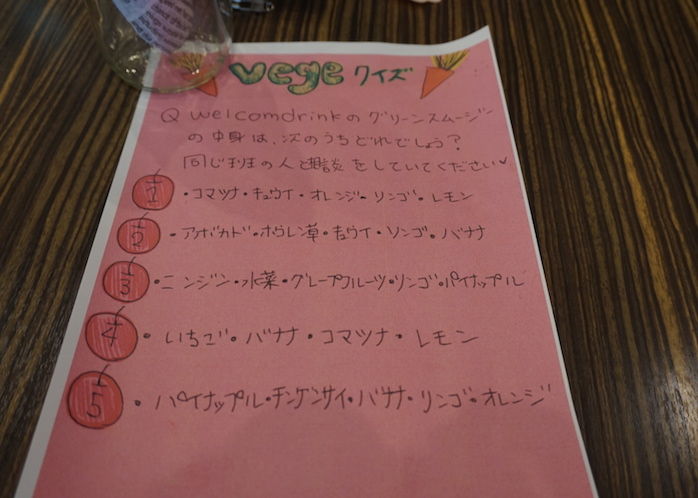 vege クイズ
Q welcomdrinkのグリーンスムージー
の中身は、次のうちどれでしょう?
同じ班の人と相談をしていてください
1 ・コマツナ・キュウイ・オレンジ・リンゴ・レモン
2 ・アボカド・ホウレン草・キュウイ・リンゴ・バナナ
3 ・ニンジン・水菜・グレープフルーツ・リンゴ・パイナップル
4 ・いちご・バナナ・コマツナ・レモン
5 ・パイナップル・チンゲンサイ・バナナ・リンゴ・オレンジ